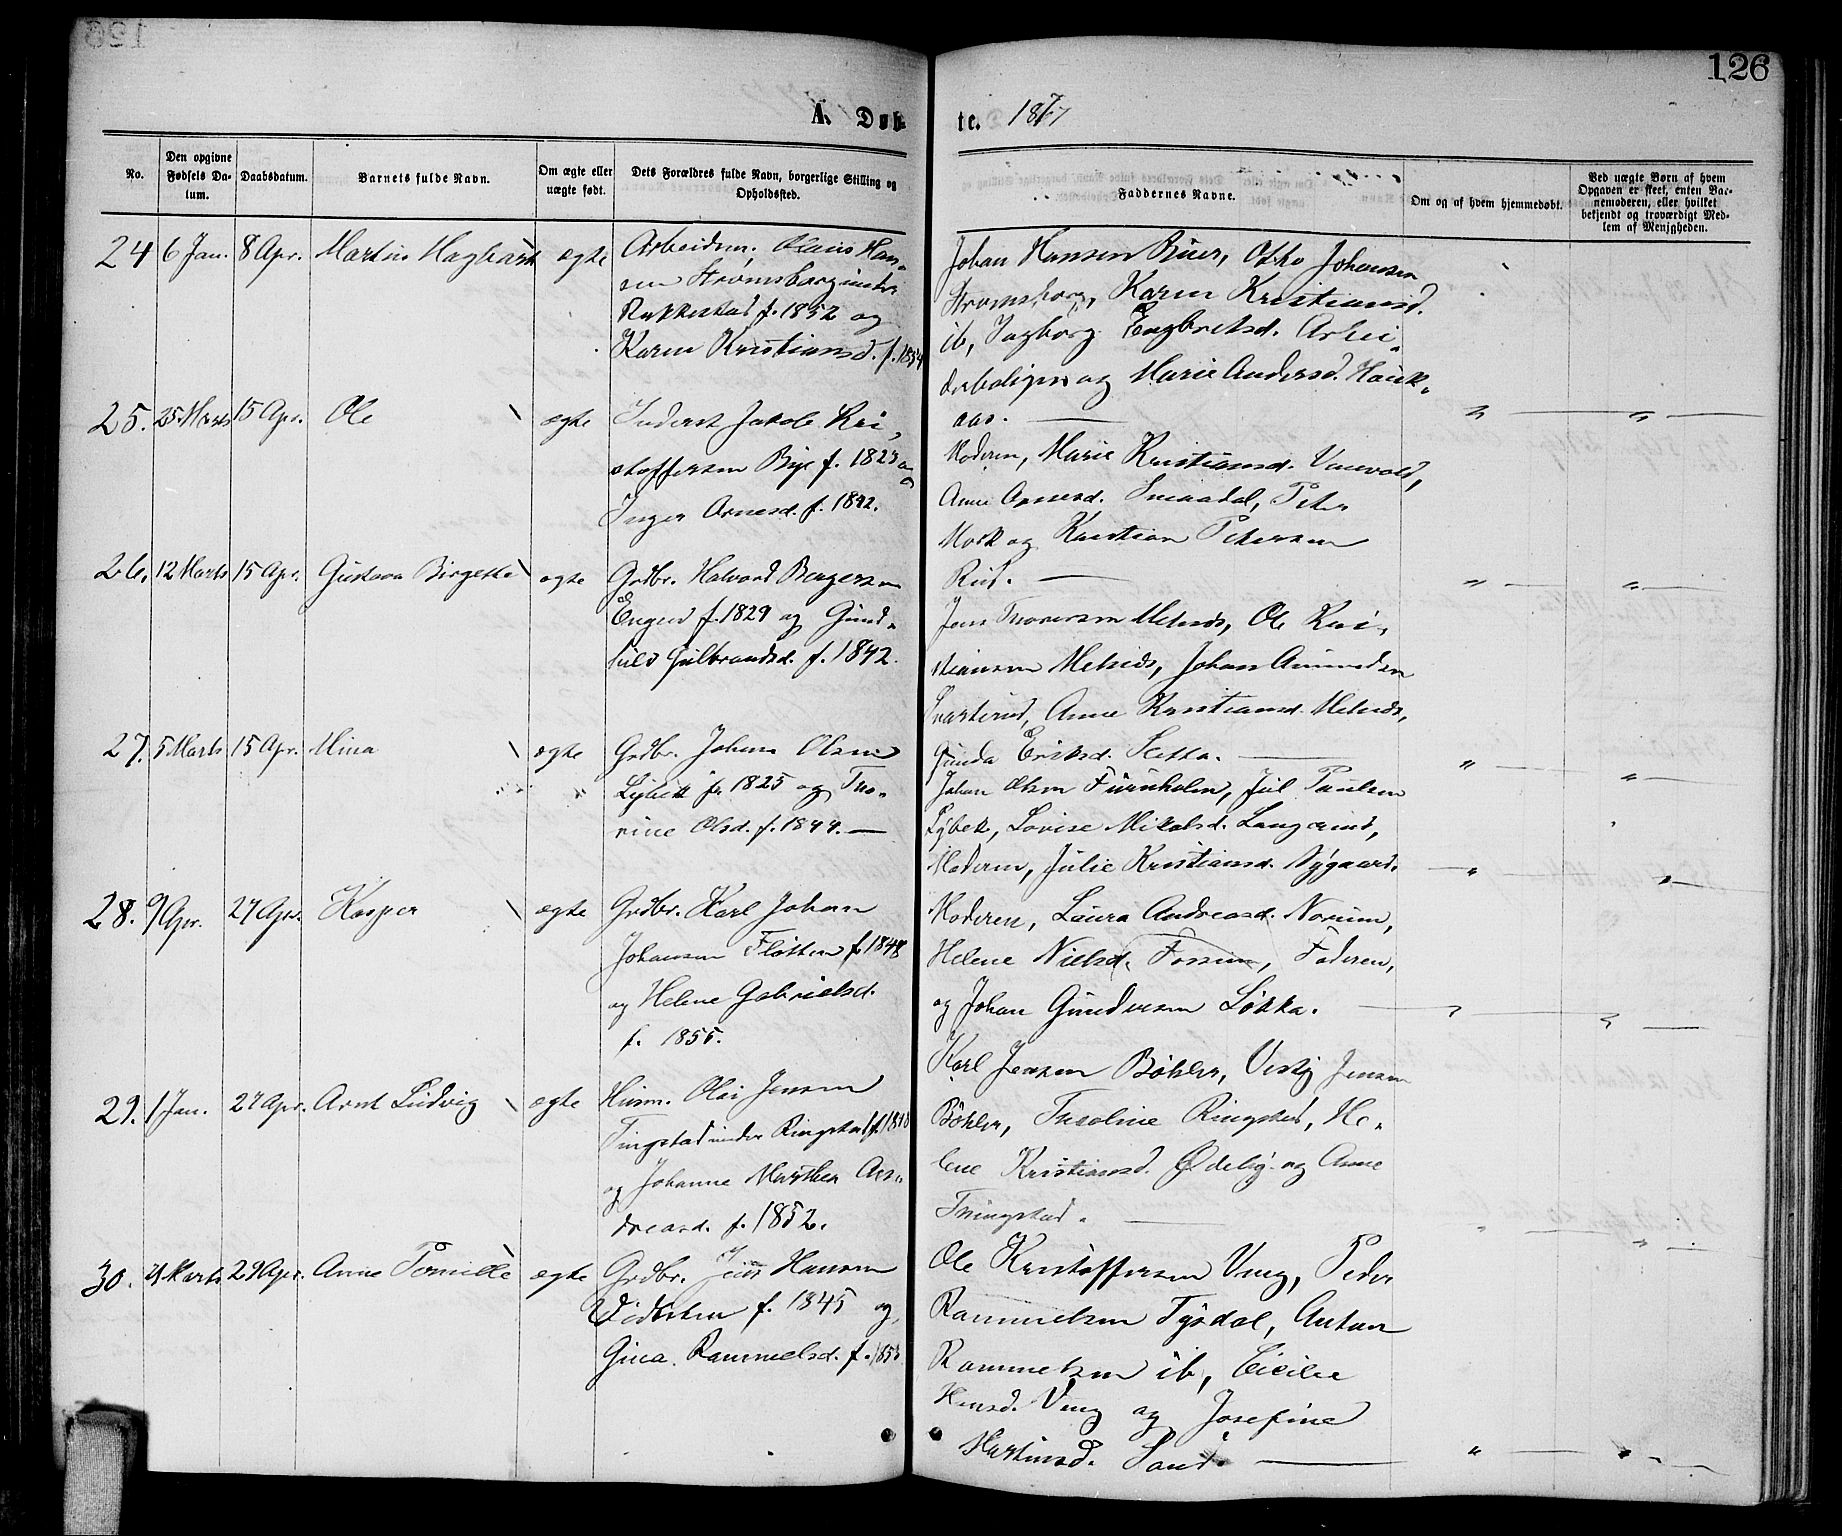 126
A. Døb-
te. 1877
No.
Den opgivne Fødsels Da-tum.
Daabsdatum.
Barnets fulde Navn.
Om ægte eller uægte født.
Dets Forældres fulde Navn, borgerlige Stilling og Opholdssted.
Faddernes Navne.
Om og af hvem hjemmedøbt.
Ved uægte Børn af hvem Opgaven er skeet, enten Bar-nemoderen, eller hvilket bekjendt og troværdigt Med-lem af Menigheden.
24 6 Jan. 8 Apr. Martin Hagbart ægte Arbeidsm. Olaus Han-
sen Strømsborg under
Rakkestad f. 1852 og
Karen Kristiansd. f. 1854
Johan Hansen Buer, Otto Johansen
Strømsborg, Karen Kristiansd.
ib, Ingborg Engbretsd. Arbei-
derboligen og Marie Andersd. Hauk-
aas.
25. 25 Marts 15 Apr. Ole ægte Inderst Jakob Kri-
stoffersen Bye f. 1823 og
Inger Arnesd. f. 1842.
Moderen, Marie Kristiansd.
Anne Arnesd. Smaadal, Peter
Mork og Kristian Petersen
Rud.
26. 12 Marts 15 Apr. Gustava Birgette ægte Grdbr. Halvord Bergersen
Engen f. 1829 og Gund-
hild Gulbrandsd. f. 1842.
Jens Thoresen Melnds, Ole Kri-
stiansen Melnds, Johan Amundsen
Svarterud, Anne Kristiansd. Melnds,
Gunda Eriksd. Sletta.
27. 5 Marts 15 Apr. Mina ægte Grdbr. Johan Olsen
Lybek f. 1825 og Tho-
rine Olsd. f. 1844.
Johan Olsen Furuholm, Jul Paulsen
Lybek, Lovise Mikalsd. Langerud,
Moderen, Julie Kristiansd. Nygaard.
28. 9 Apr. 27 Apr. Kasper ægte Grdbr. Karl Johan
Johansen Fløtten f. 1848
og Helene Gabrielsd.
f. 1855.
Moderen, Laura Andreasd. Norum,
Helene Nielsd. Fossum, Faderen,
og Johan Gundersen Løkka.
29. 1 Jan. 27 Apr. Arnt Ludvig ægte Husm. Olai Jensen
Tingstad under Ringstad f. 1848
og Johanne Marthea An-
dreasd. f. 1852.
Karl Jensen Bøhler, Jensen
Bøhler, Theoline Ringstad, He-
lene Kristiansd. Ødeby og Anne
Thingstad.
30. Marts 29 Apr. Anne Pernille ægte Grdbr. Jens Hansen
f. 1845 og
Gina Rammelsd. f. 1853
Ole Kristoffersen Veng, Peder
Rammelsen Tysdal, Anton
Rammelsen ib, Cicilie
Hansd. Veng og Josefine
Martinsd. Sand.